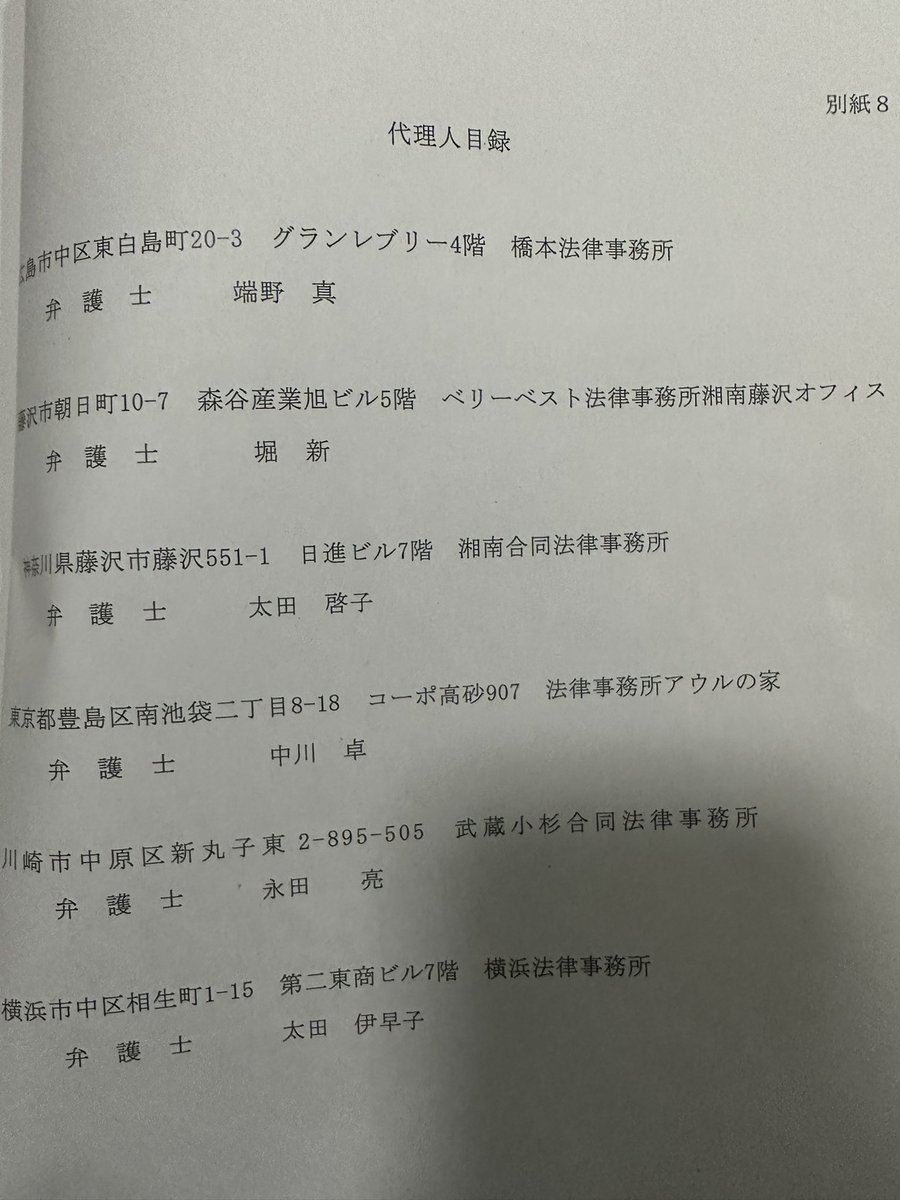 別紙8
代理人目録
広島市中区東白島町20-3 グランレブリー4階 橋本法律事務所
弁護士 端野 真
藤沢市朝日町10-7 森谷産業旭ビル5階 ベリーベスト法律事務所湘南藤沢オフィス
弁護士 堀 新
神奈川県藤沢市藤沢551-1 日進ビル7階 湘南合同法律事務所
弁護士 太田 啓子
東京都豊島区南池袋二丁目8-18 コーポ高砂907 法律事務所アウルの家
弁護士 中川 卓
川崎市中原区新丸子東2-895-505 武蔵小杉合同法律事務所
弁護士 永田 亮
横浜市中区相生町1-15 第二東商ビル7階 横浜法律事務所
弁護士 太田 伊早子